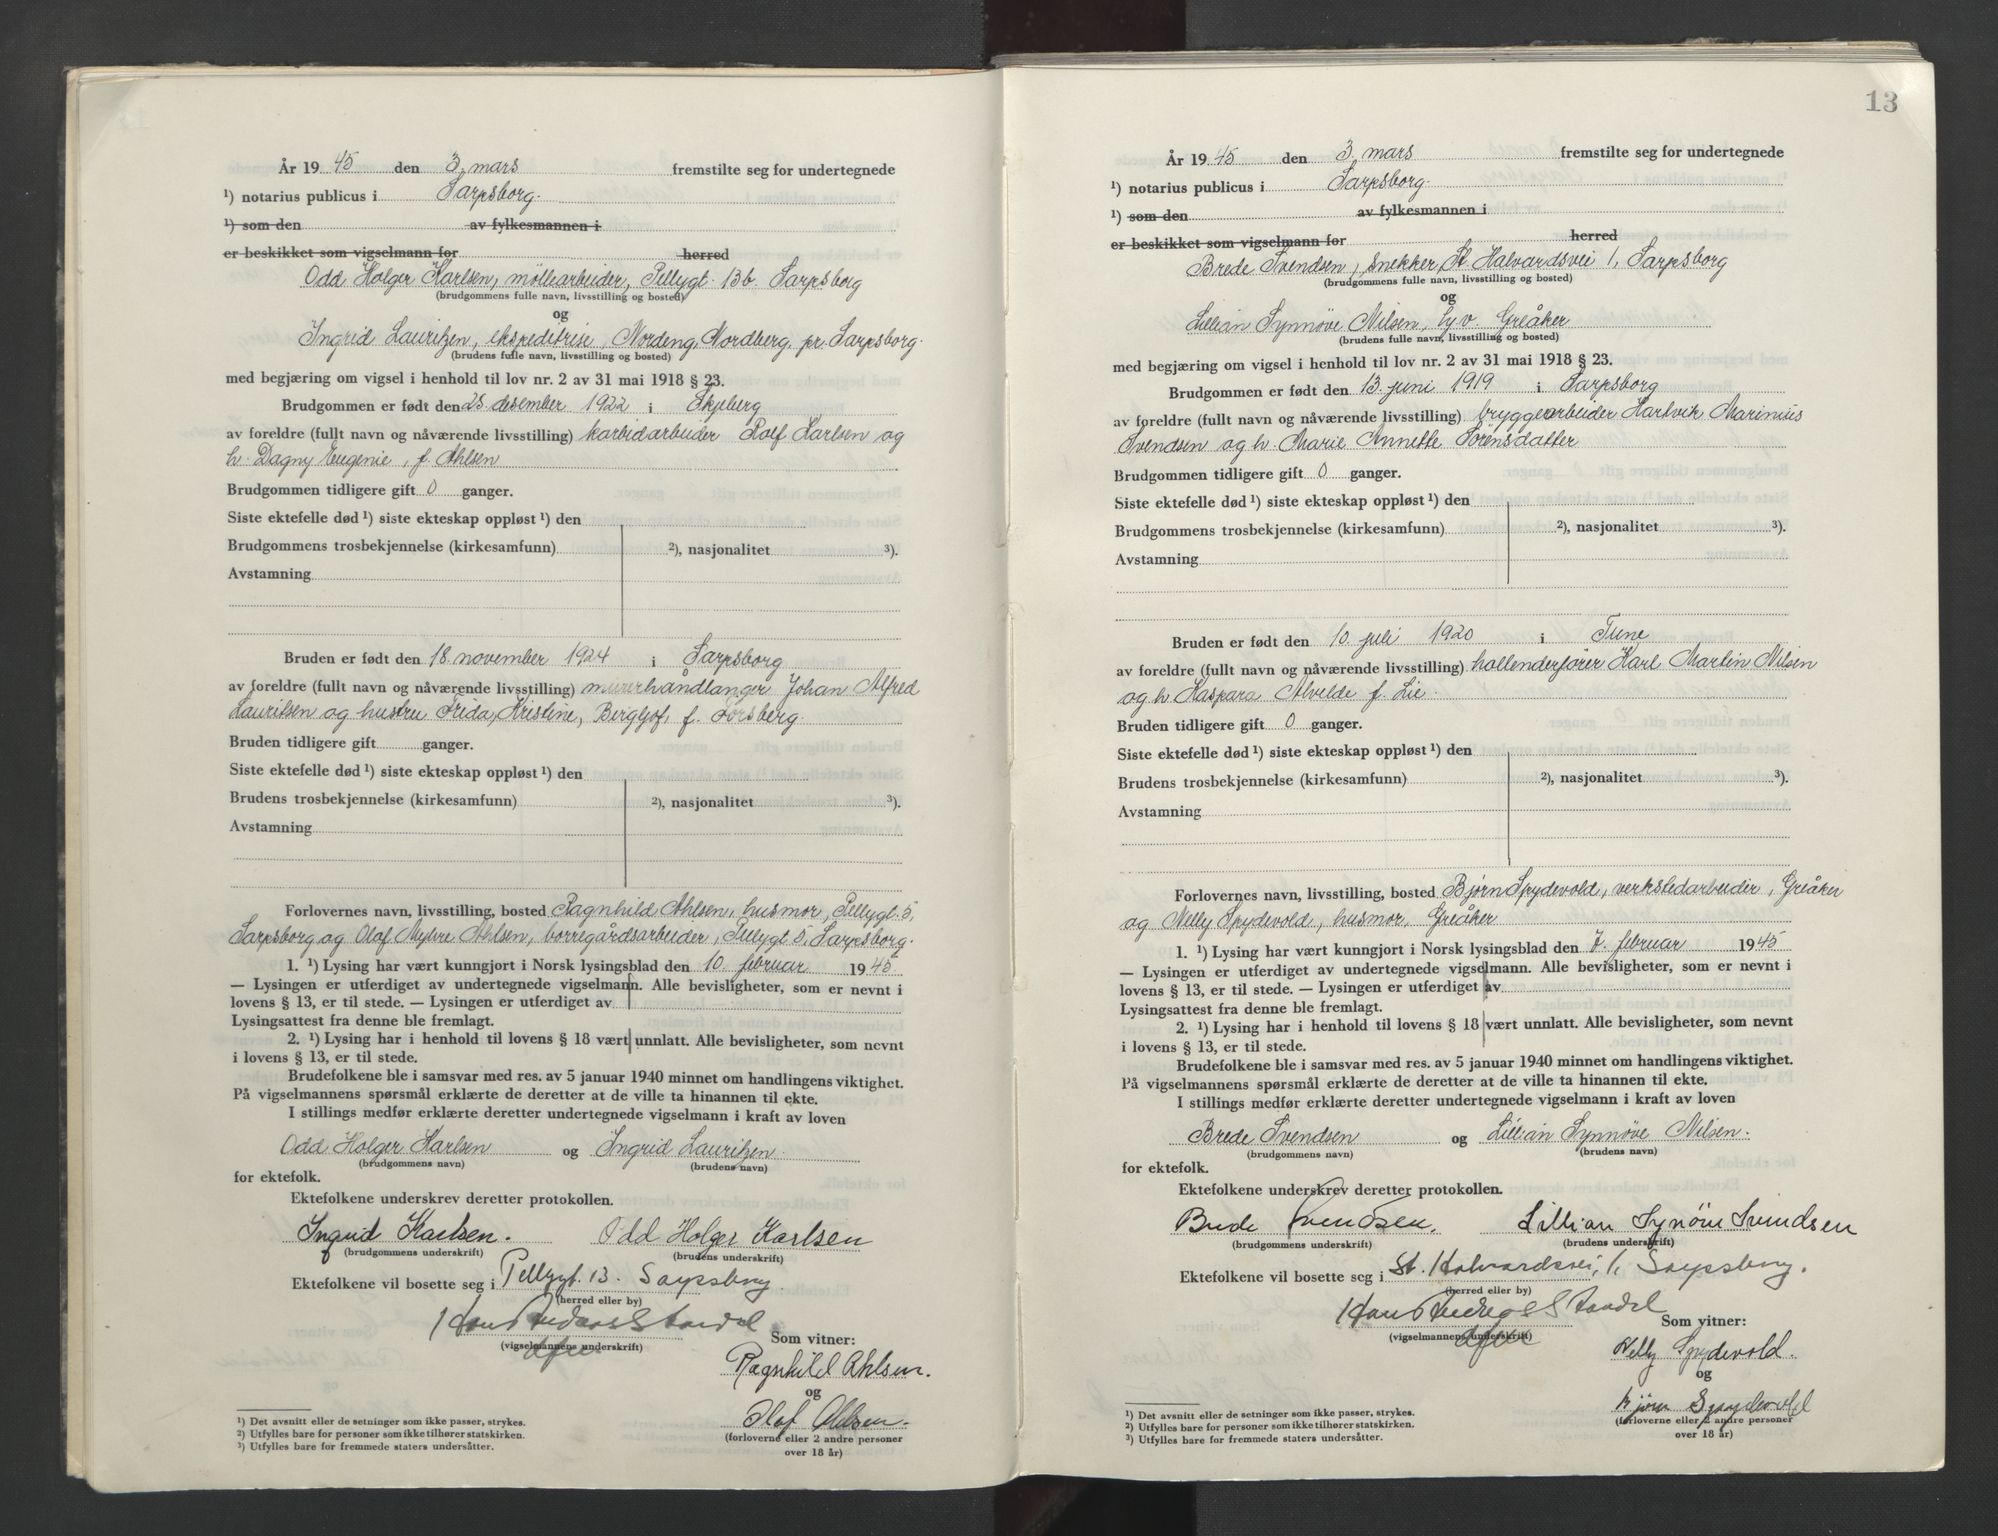 År 19 45 den 3. mars fremstilte seg for undertegnede
¹) notarius publicus i Sarpsborg.
¹) som den av fylkesmannen i
er beskikket som vigselmann for herred
Odd Holger Karlsen, møllearbeider, Pellygt. 13b. Sarpsborg
(brudgommens fulle navn, livsstilling og bosted)
og
Ingrid Lauritzen, ekspeditrise, Nordeng, Nordberg, pr. Sarpsborg.
(brudens fulle navn, livsstilling og bosted)
med begjæring om vigsel i henhold til lov nr. 2 av 31 mai 1918 § 23.
Brudgommen er født den 28. desember 1922 i Skjeberg
av foreldre (fullt navn og nåværende livsstilling) karbidarbeider Rolf Karlsen og
h. Dagny Eugenie, f. Ahlsen
Brudgommen tidligere gift 0 ganger.
Siste ektefelle død ¹) siste ekteskap oppløst ¹) den
Brudgommens trosbekjennelse (kirkesamfunn) ²), nasjonalitet ³).
Avstamning
Bruden er født den 18. november 1924 i Sarpsborg
av foreldre (fullt navn og nåværende livsstilling) murerhåndlanger Johan Alfred
Lauritsen og hustru Frida, Kristine, Bergljot, f. Forsberg.
Bruden tidligere gift ganger.
Siste ektefelle død ¹) siste ekteskap oppløst ¹) den
Brudens trosbekjennelse (kirkesamfunn) ²), nasjonalitet ³).
Avstamning
Forlovernes navn, livsstilling, bosted Ragnhild Ahlsen, husmor, Pellygt. 5,
Sarpsborg og Olaf Ahlsen, borregårdsarbeider, Pellygt 5, Sarpsborg.
1. ¹) Lysing har vært kunngjort i Norsk lysingsblad den 10. februar 19 45
— Lysingen er utferdiget av undertegnede vigselmann. Alle bevisligheter, som er nevnt i
lovens § 13, er til stede. — Lysingen er utferdiget av
Lysingsattest fra denne ble fremlagt.
2. ¹) Lysing har i henhold til lovens § 18 vært unnlatt. Alle bevisligheter, som nevnt
i lovens § 13, er til stede.
Brudefolkene ble i samsvar med res. av 5 januar 1940 minnet om handlingens viktighet.
På vigselmannens spørsmål erklærte de deretter at de ville ta hinannen til ekte.
I stillings medfør erklærte deretter undertegnede vigselmann i kraft av loven
Odd Holger Karlsen og Ingrid Lauritzen.
(brudgommens navn) (brudens navn)
for ektefolk.
Ektefolkene underskrev deretter protokollen.
Ingrid Karlsen. Odd Holger Karlsen
(brudgommens underskrift) (brudens underskrift)
Ektefolkene vil bosette seg i Pellygt. 13. Sarpsborg.
(herred eller by)
Hans Andreas Standal
(vigselmannens underskrift)
Som vitner:
Ragnhild Ahlsen.
og
Olaf Ahlsen.
(forloverne eller 2 andre personer
over 18 år)
¹) Det avsnitt eller de setninger som ikke passer, strykes.
²) Utfylles bare for personer som ikke tilhører statskirken.
³) Utfylles bare for fremmede staters undersåtter.
13
År 19 45 den 3. mars fremstilte seg for undertegnede
¹) notarius publicus i Sarpsborg.
¹) som den av fylkesmannen i
er beskikket som vigselmann for herred
Brede Svendsen, snekker, St. Halvardsvei 1, Sarpsborg
(brudgommens fulle navn, livsstilling og bosted)
og
Lillian Synnøve Nilsen, hj.v. Greåker
(brudens fulle navn, livsstilling og bosted)
med begjæring om vigsel i henhold til lov nr. 2 av 31 mai 1918 § 23.
Brudgommen er født den 13. juni 1919 i Sarpsborg
av foreldre (fullt navn og nåværende livsstilling) bryggearbeider Hartvik Marinius
Svendsen og h. Marie Annette Sörensdatter
Brudgommen tidligere gift 0 ganger.
Siste ektefelle død ¹) siste ekteskap oppløst ¹) den
Brudgommens trosbekjennelse (kirkesamfunn) ²), nasjonalitet ³).
Avstamning
Bruden er født den 10. juli 1920 i Tune
av foreldre (fullt navn og nåværende livsstilling) hollenderfører Karl Martin Nilsen
og h. Kaspara Alvelde f. Lie.
Bruden tidligere gift 0 ganger.
Siste ektefelle død ¹) siste ekteskap oppløst ¹) den
Brudens trosbekjennelse (kirkesamfunn) ²), nasjonalitet ³).
Avstamning
Forlovernes navn, livsstilling, bosted Bjørn Spydevold, verkstedarbeider, Greåker
og Nelly Spydevold, husmor, Greåker
1. ¹) Lysing har vært kunngjort i Norsk lysingsblad den 7. februar 19 45
— Lysingen er utferdiget av undertegnede vigselmann. Alle bevisligheter, som er nevnt i
lovens § 13, er til stede. — Lysingen er utferdiget av
Lysingsattest fra denne ble fremlagt.
2. ¹) Lysing har i henhold til lovens § 18 vært unnlatt. Alle bevisligheter, som nevnt
i lovens § 13, er til stede.
Brudefolkene ble i samsvar med res. av 5 januar 1940 minnet om handlingens viktighet.
På vigselmannens spørsmål erklærte de deretter at de ville ta hinannen til ekte.
I stillings medfør erklærte deretter undertegnede vigselmann i kraft av loven
Brede Svendsen og Lillian Synnøve Nilsen.
(brudgommens navn) (brudens navn)
for ektefolk.
Ektefolkene underskrev deretter protokollen.
Brede Svendsen. Lillian Synöve Svendsen
(brudgommens underskrift) (brudens underskrift)
Ektefolkene vil bosette seg i St. Halvardsvei, 1, Sarpsborg.
(herred eller by)
Hans Andreas Standal
(vigselmannens underskrift)
Som vitner:
Nelly Spydevold.
og
Bjørn Spydevold
(forloverne eller 2 andre personer
over 18 år)
¹) Det avsnitt eller de setninger som ikke passer, strykes.
²) Utfylles bare for personer som ikke tilhører statskirken.
³) Utfylles bare for fremmede staters undersåtter.